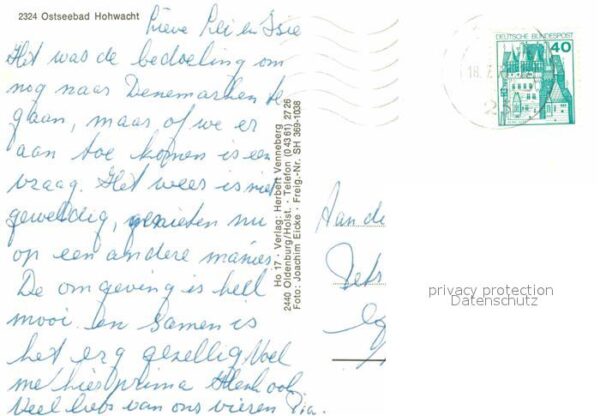 2324 Ostseebad Hohwacht
Lieve Lei en Isie
Het was de bedoeling om
nog naar Denemarken te
gaan, maar of we er
aan toe komen is een
vraag. Het weer is niet
geweldig, genieten nu
op een andere manier.
De omgeving is heel
mooi en samen is
het erg gezellig Voel
me hier prima Henk ook
Veel liefs van ons vieren Pia.
Ho 17 · Verlag: Herbert Venneberg
2440 Oldenburg/Holst. · Telefon (0 43 61) 27 26
Foto: Joachim Eicke · Freig.-Nr. SH 369-1038
DEUTSCHE BUNDESPOST
40
18.
23
Aan de
privacy protection
Datenschutz